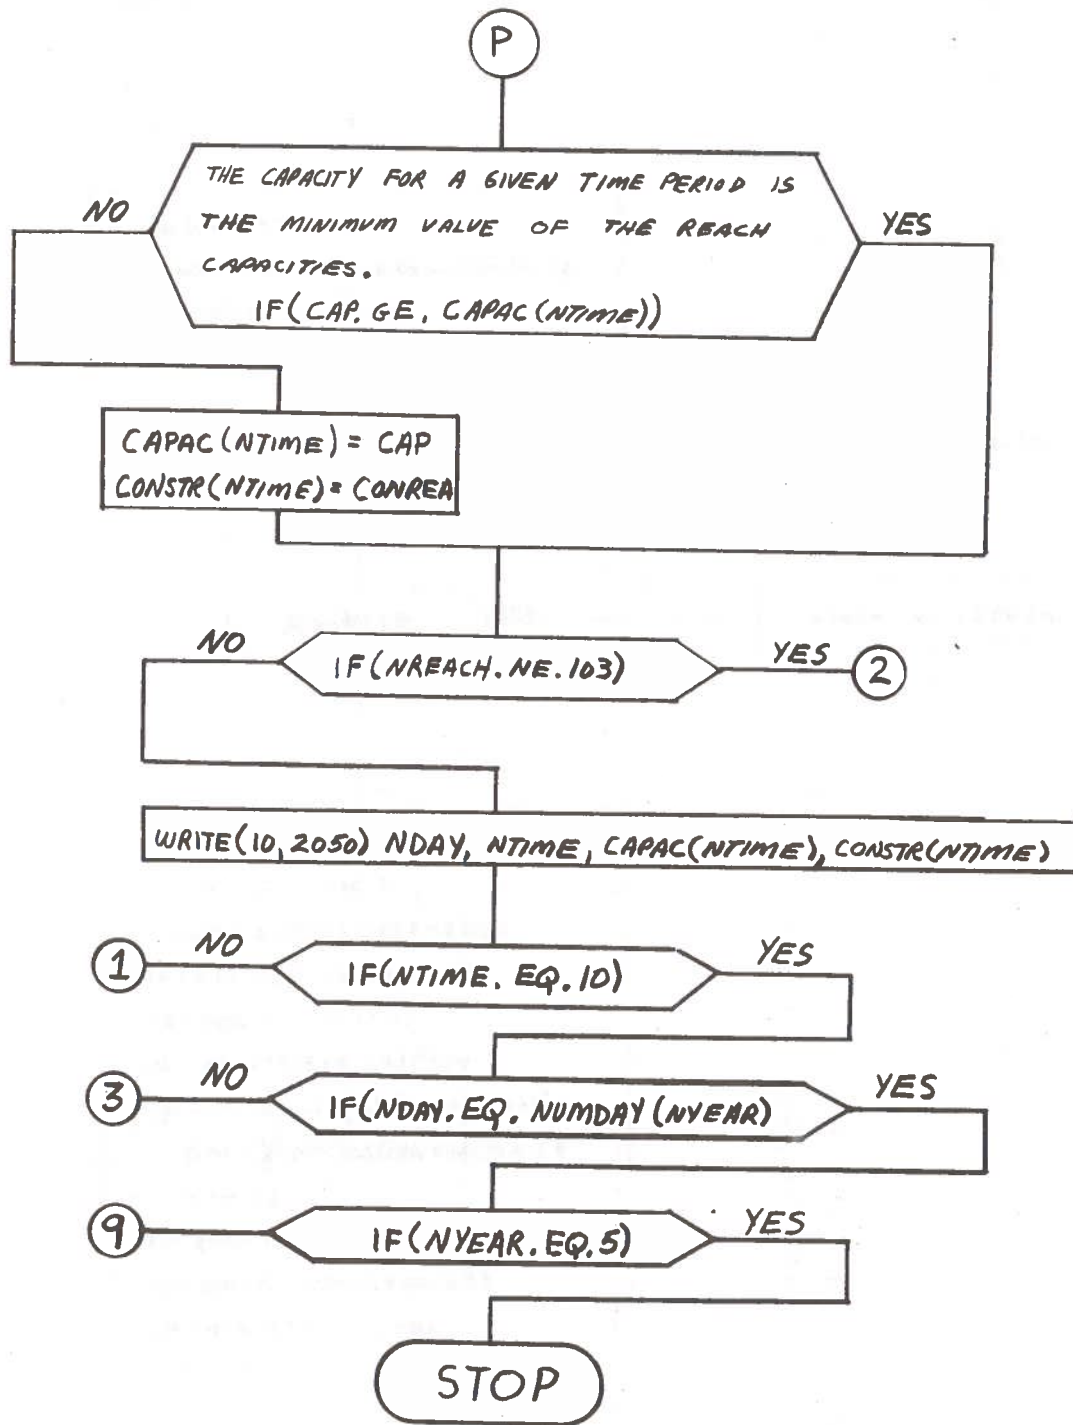 P
THE CAPACITY FOR A GIVEN TIME PERIOD IS
THE MINIMUM VALUE OF THE REACH
CAPACITIES.
IF(CAP.GE. CAPAC(NTIME))
NO
YES
CAPAC(NTIME) = CAP
CONSTR(NTIME) = CONREA
NO
IF(NREACH.NE.103)
YES
2
WRITE(10,2050) NDAY, NTIME, CAPAC(NTIME), CONSTR(NTIME)
1
NO
IF(NTIME.EQ.10)
YES
3
NO
IF(NDAY.EQ. NUMDAY(NYEAR)
YES
9
IF(NYEAR.EQ.5)
YES
STOP